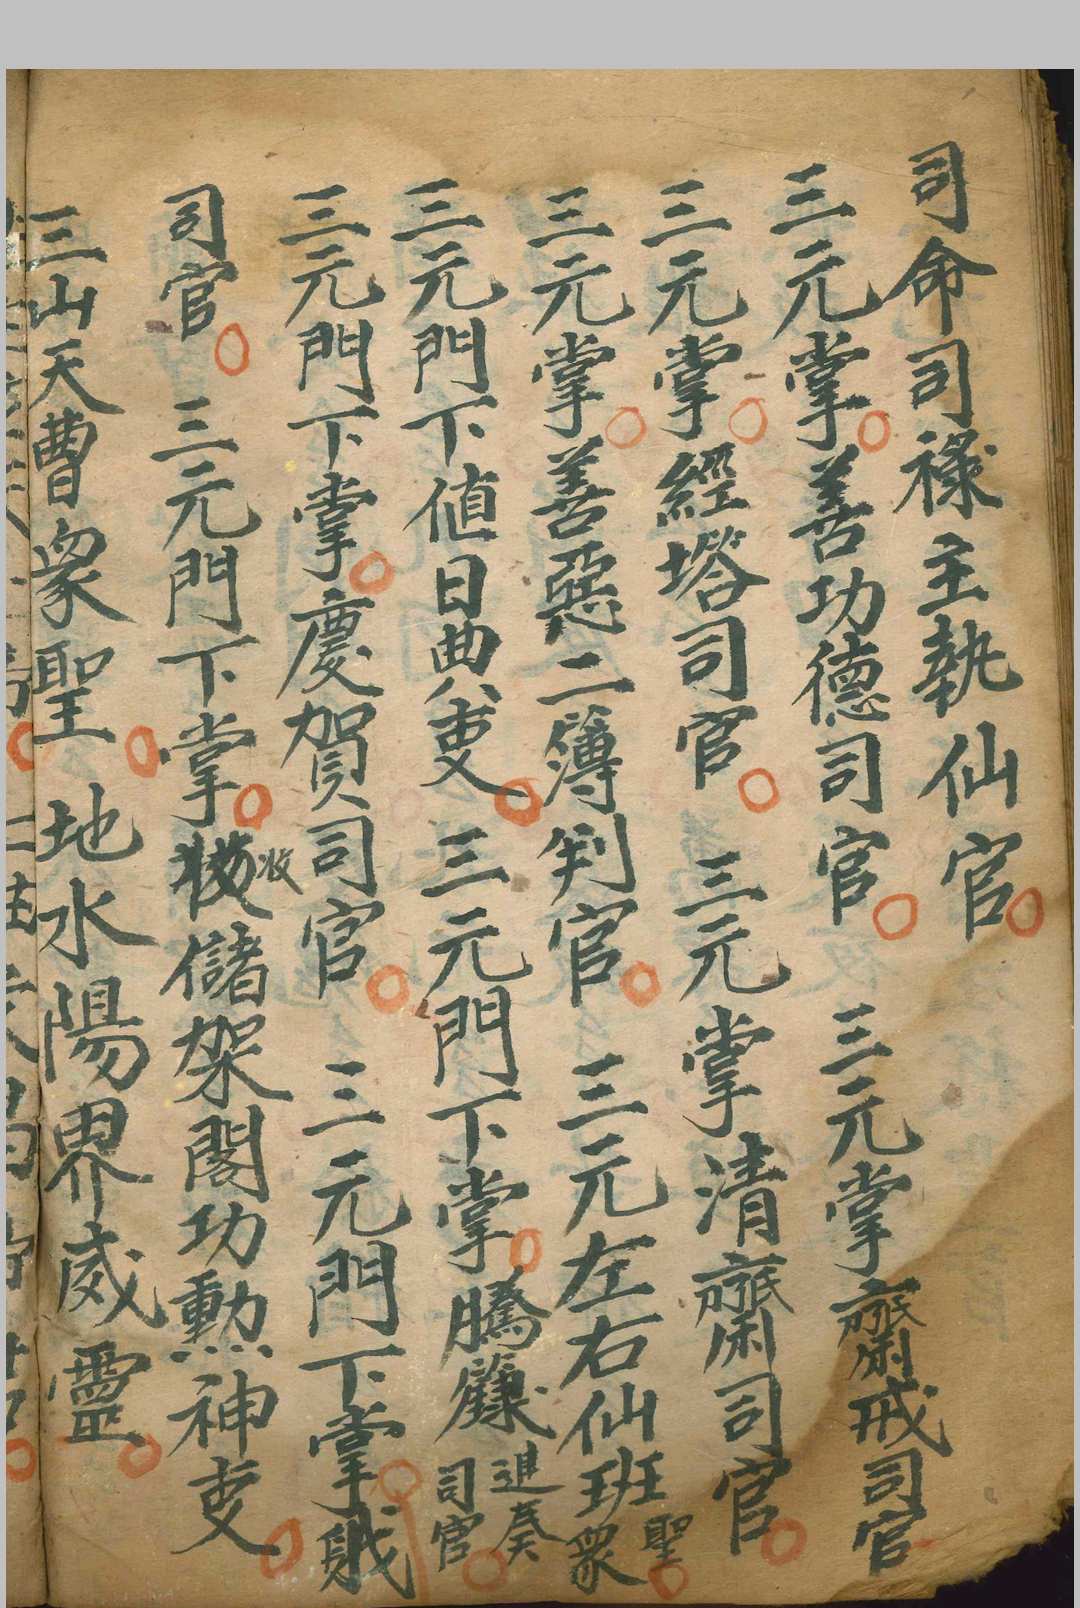 司命司祿主執仙官
三元掌善功德司官 三元掌齋戒司官
三元掌經塔司官 三元掌清齋司官
三元掌善惡二簿判官 三元左右仙班眾聖
三元門下值日曲㕮吏 三元門下掌騰籙進奏司官
三元門下掌慶賀司官 三元門下掌賊
司官 三元門下掌收儲架閣功勳神吏
三山天曹眾聖 地水陽界威靈